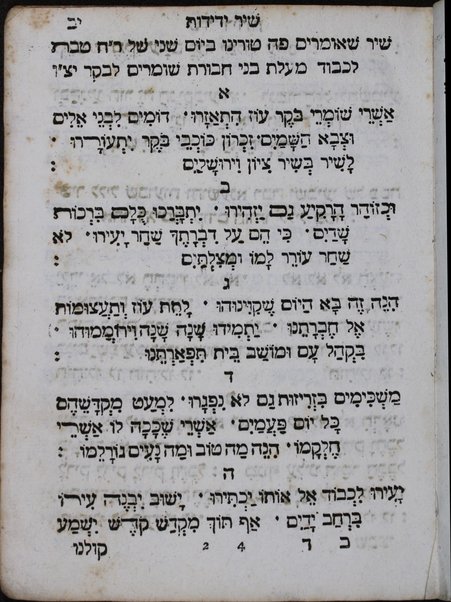 שיר ידידות יב
שיר שאומרים פה טורינו ביום שני של ר״ח טבת
לכבוד מעלת בני חבורת שומרים לבקר יצ״ו
א
אַשְׁרֵי שׁוֹמְרֵי בֹּקֶר עוֹז הִתְאַזָּרוּ · דּוֹמִים לִבְנֵי אֵלִים
וּצְבָא הַשָּׁמַיִם זִכְרוֹן כּוֹכְבֵי בֹקֶר יִתְעוֹרָרוּ ·
לָשִׁיר בְּשִׁיר צִיּוֹן וִירוּשָׁלָיִם :
ב
וּכְזוֹהַר הָרָקִיעַ גַם יַזְהִירוּ · יִתְבָּרְכוּ כֻּלָּם בִּרְכוֹת
שָׁדַיִם · כִּי הֵם עַל דִבְרָתְךָ שַׁחַר יָעִירוּ · לֹא
שַׁחַר עוֹרֵר לָמוֹ וּמְצִלְתָּיִם :
ג
הִנֵּה זֶה בָּא הַיּוֹם שֶׁקִּוִּינוּהוּ · לָתֵת עוֹז וְתַעֲצוּמוֹת
אֶל חֶבְרָתֵנוּ · יַתְמִידוּ שָׁנָה שָׁנָה וִירוֹמְמוּהוּ ·
בִּקְהַל עָם וּמוֹשַׁב בֵּית תִּפְאַרְתֵּנוּ :
ד
מַשְׁכִּימִים בִּזְרִיזוּת גַם לֹא נִפְגָּרוּ · לְמְעַט מִקְדָּשֵׁיהֶם
כָּל יוֹם פַּעֲמַיִם · אַשְׁרֵי שֶׁכָּכָה לוֹ אַשְׁרֵי
חֶלְקָמוֹ · הִנֵּה מַה טוֹב וּמַה נָּעִים גּוֹרָלֵמוֹ :
ה
יָעִירוּ לִכְבוֹד אֵל אוֹתוֹ יַכְתִּירוּ · יָשׁוּב יִבְנֶה עִירוֹ
בְּרַחַב יָדָיִם · אַף תּוֹךְ מִקְדַּשׁ קֹדֶשׁ יִשְׁמַע
כ ד 2 4 קולנו